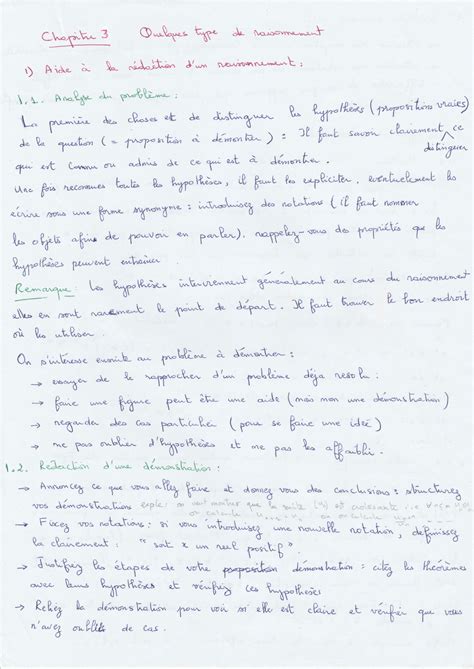 Chapitre 3 Quelques type de raisonnement
1) Aide à la rédaction d'un raisonnement :
1.1. Analyse du problème :
La première des choses et de distinguer les hypothèses (propositions vraies)
de la question (= proposition à démontrer) : Il faut savoir clairement ce
distinguer
qui est connu ou admis de ce qui est à démontrer.
Une fois reconnues toutes les hypothèses, il faut les expliciter, eventuellement les
écrire sous une forme synonyme : introduisez des notations (il faut nommer
les objets afin de pouvoir en parler), rappelez-vous des propriétés que les
hypothèses peuvent entraîner.
Remarque : Les hypothèses interviennent généralement au cours du raisonnement
elles en sont rarement le point de départ. Il faut trouver le bon endroit
où les utiliser.
On s'intéresse ensuite au problème à démontrer :
→ essayer de le rapprocher d'un problème déja resolu.
→ faire une figure peut être une aide (mais non une démonstration)
→ regarder des cas particulier (pour se faire une idée)
→ ne pas oublier d'hypothèses et ne pas les affaiblir.
1.2. Rédaction d'une démonstration :
→ Annoncez ce que vous allez faire et donnez vous des conclusions : structurez
vos démonstrations exple : on veut montrer que la suite est croissante i.e
→ Fixez vos notations : si vous introduisez une nouvelle notation, définissez
la clairement. " soit x un réel positif ".
→ Justifiez les étapes de votre démonstration : citez les théorèmes
avec leurs hypothèses et vérifiez ces hypothèses
→ Reliez la démonstration pour voir si elle est claire et vérifier que vous
n'avez oublié de cas.